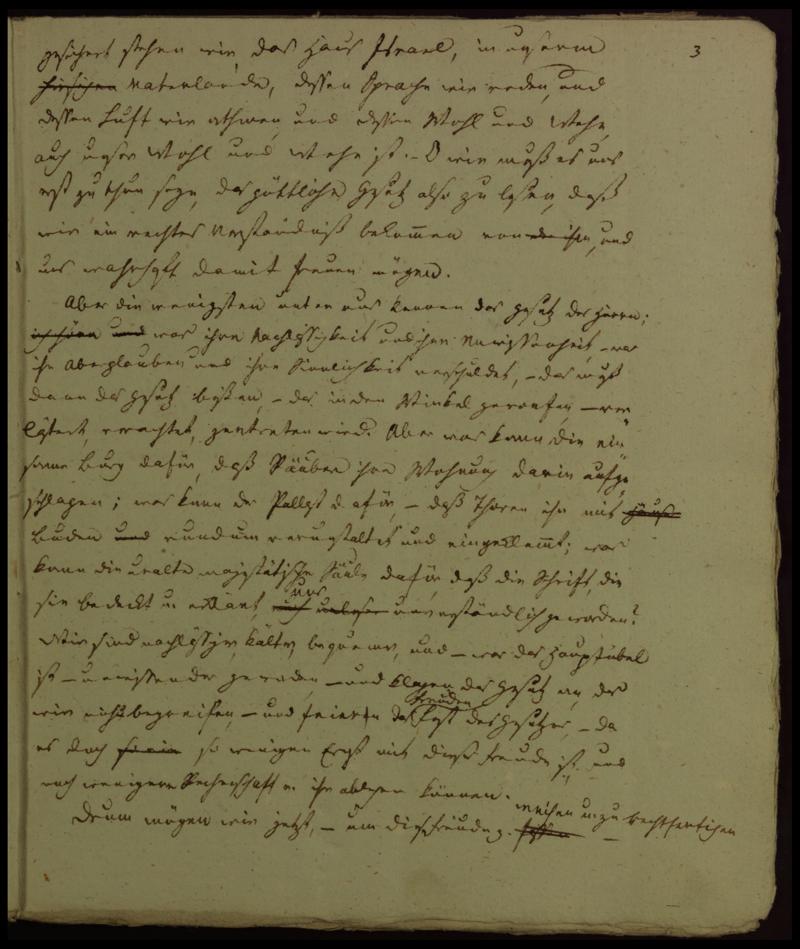 3
gesichert stehen wir, das Haus Israel, in unserm
hiesigen Vaterlande, dessen Sprache wir reden, und
dessen Luft wir athmen, und dessen Wohl und Wehe,
auch unser Wohl und Wehe ist. – O wie muß es uns
erst zu thun seyn, das göttliche Gesetz also zu lesen, daß
wir ein rechtes Verständniß bekommen von, und
uns wahrhaft damit freuen mögen.
Aber die wenigsten unter uns kennen das Gesetz des Herrn;
und was ihre Nachlässigkeit und ihre Unwissenheit, – was
ihr Aberglauben und ihre Sinnlichkeit verschuldet, – das muß
dann das Gesetz büßen, – das in den Winkel geworfen, – ver
lästert, verachtet, zertreten wird. Aber was kann die ein
same Burg dafür, daß Räuber ihre Wohnung darin aufge
schlagen; was kann der Pallast dafür, – daß Thoren ihn mit
Buden und rundum verunstaltet und eingeklemmt; was
kann die uralte majestätische Säule dafür, daß die Schrift, die
sie bedeckt u. erklärt, uns unverständlich geworden?
Wir sind nachlässiger, kälter, bequemer, und – was das Hauptübel
ist – unwissender geworden, – und klagen das Gesetz an, das
wir nicht begreifen, – und feiern das Freuden
Fest des Gesetzes, – da
es doch so wenigen Ernst mit dieser Freude ist, und
noch wenigere Rechenschaft v. ihr ablegen können.
Drum mögen wir jetzt, – um diese Freude z. weihen u. zu rechtfertigen